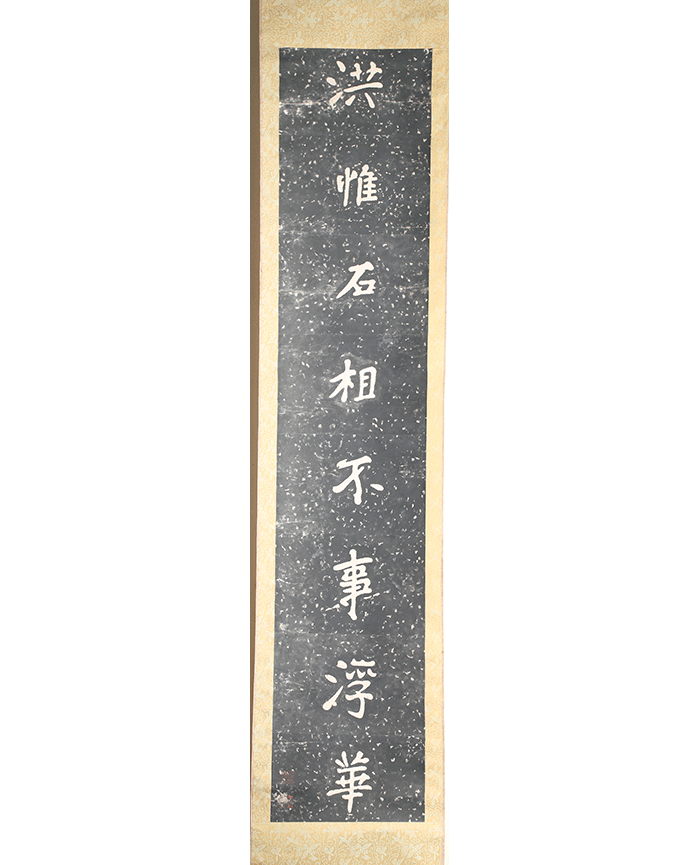 洪惟石相不事浮華